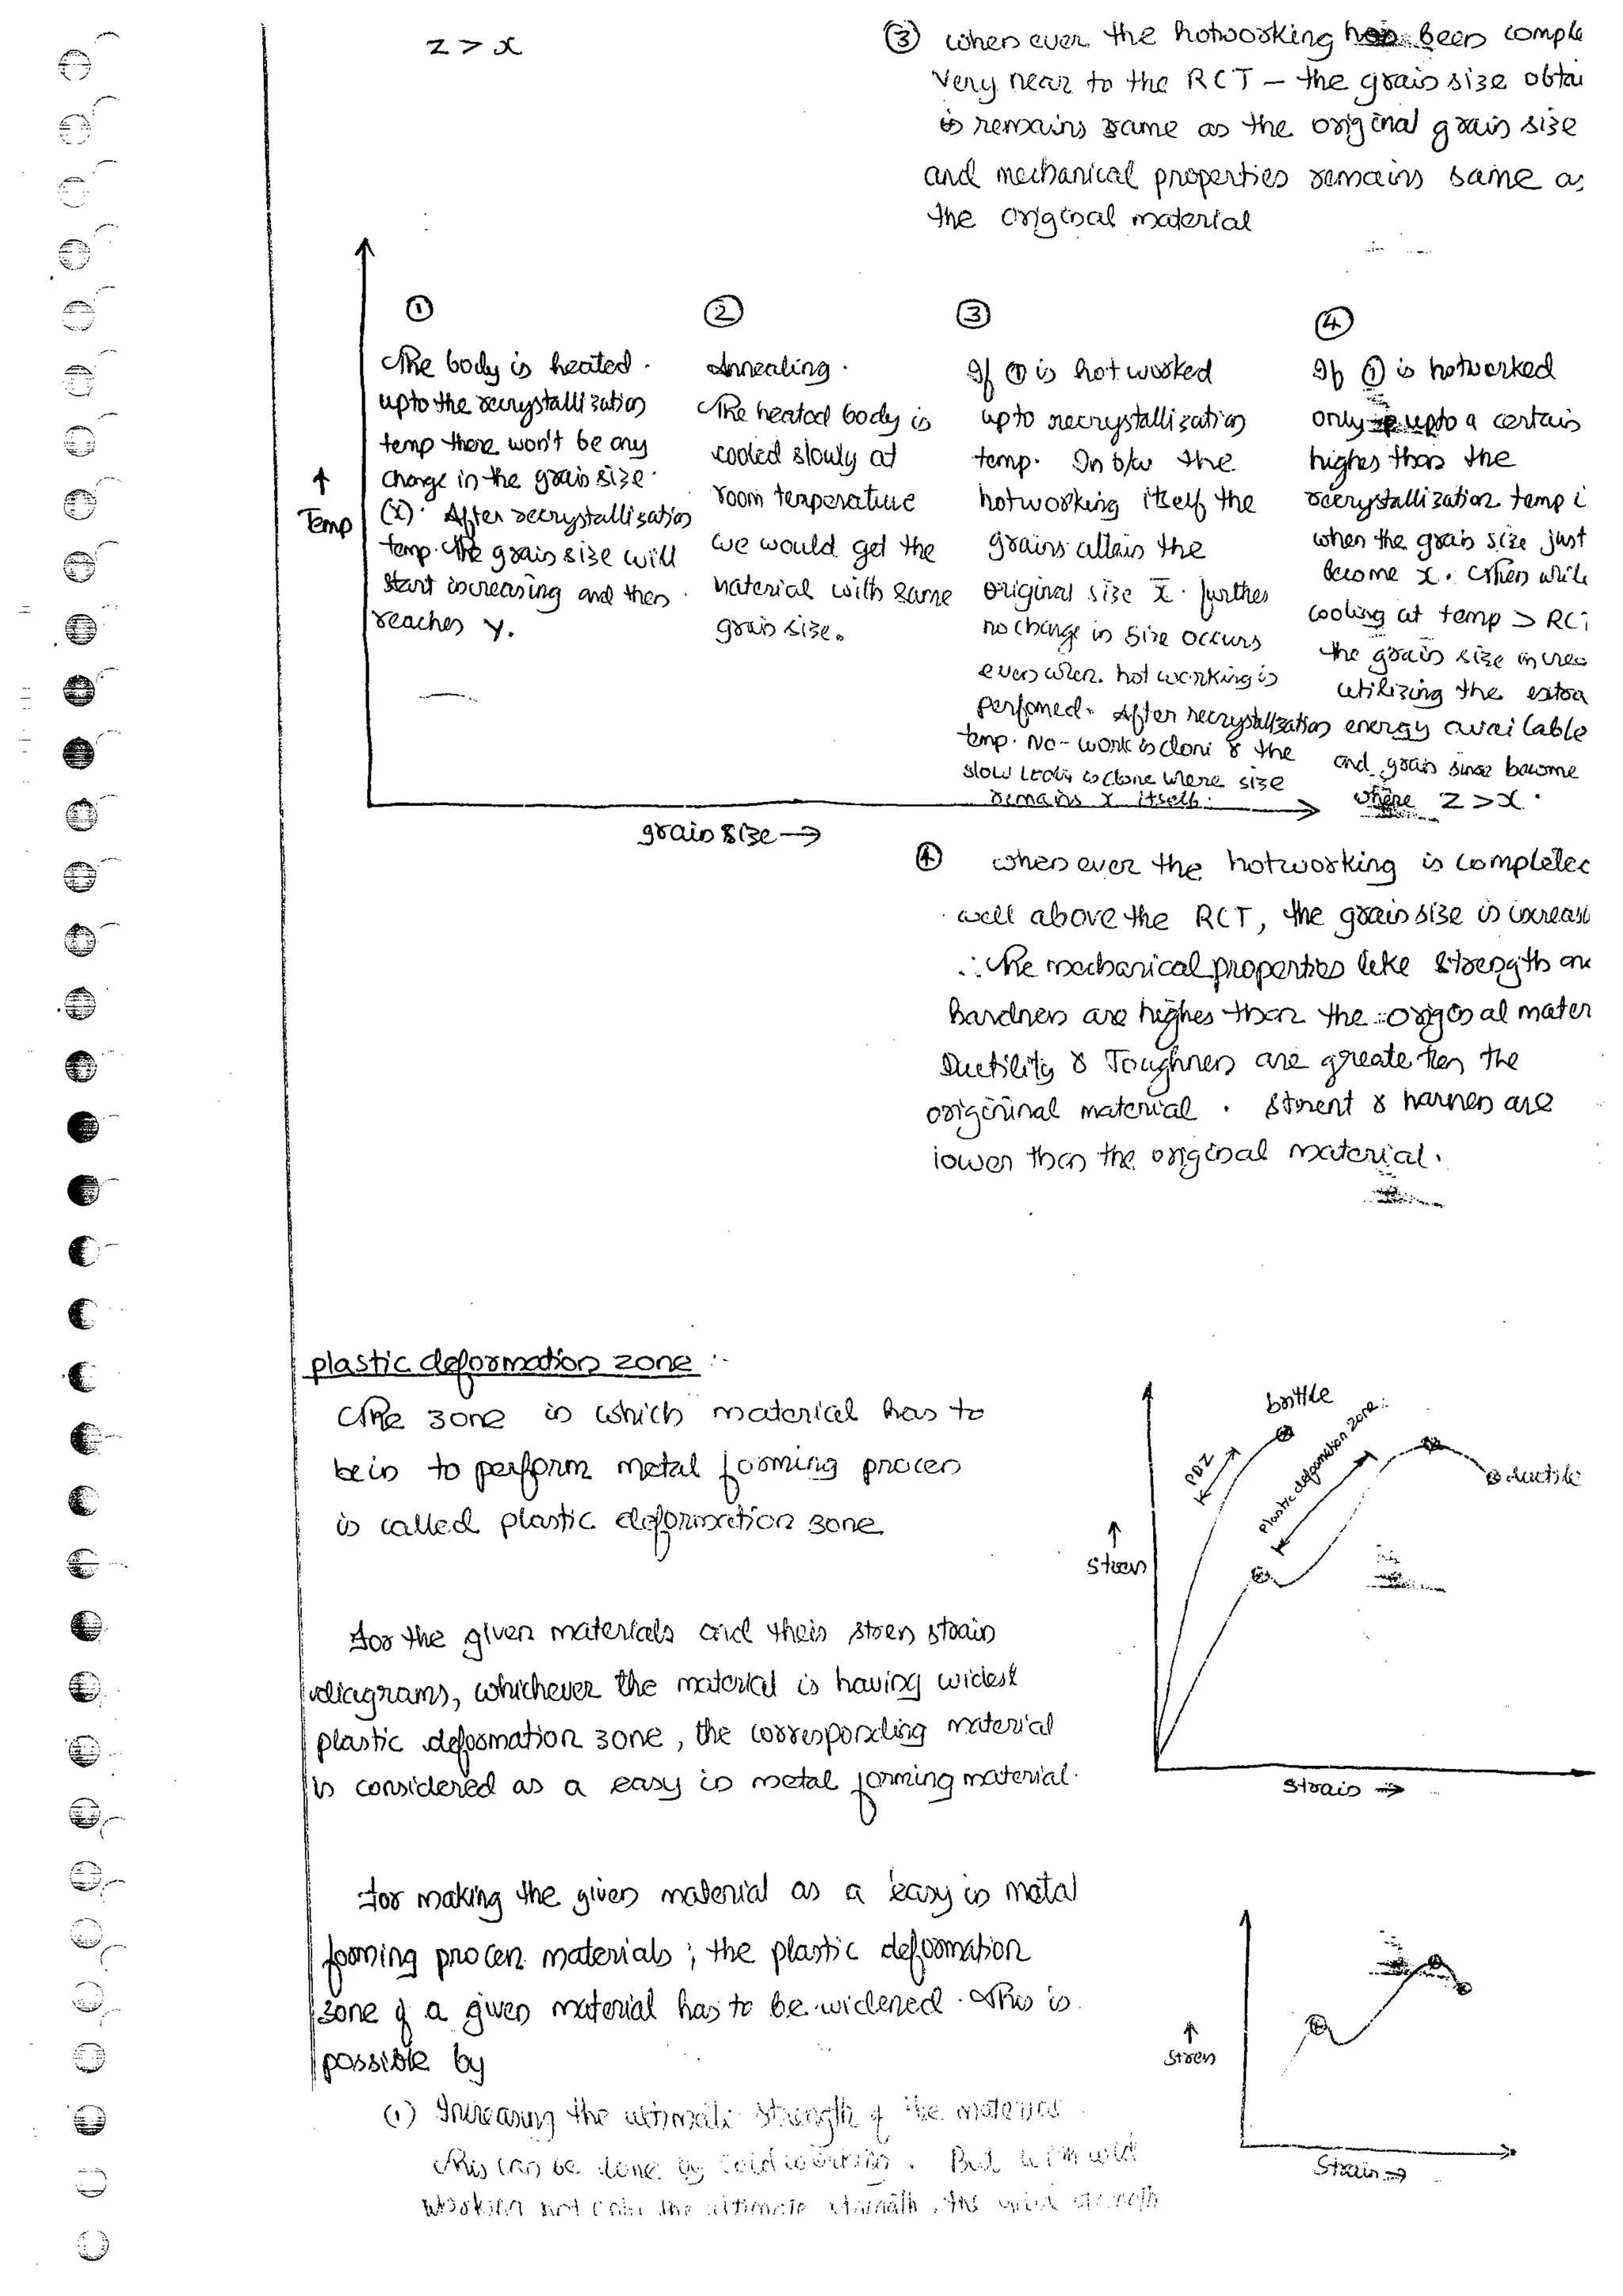 z > x
③ when ever the hotworking has been comple
very near to the RCT – the grain size obtai
is remains same as the original grain size
and mechanical properties remains same as
the original material
①
The body is heated.
upto the recrystallization
temp there won't be any
change in the grain size.
(x). After recrystallisation
temp. The grain size will
start increasing and then
reaches y.
②
Annealing.
The heated body is
cooled slowly at
room temperature
we would get the
material with same
grain size.
③
If ① is hot worked
upto recrystallization
temp. In b/w the
hotworking itself the
grains attain the
original size x. further
no change in size occurs
even when hot working is
perfomed. After recrystallization
temp. No-work is done & the
slow is done where size
remains x itself.
④
If ① is hotworked
only upto a certain
higher than the
recrystallization temp i
when the grain size just
become x. Then while
cooling at temp > RCT
the grain size increa
utilizing the extra
energy available
and grain since become
where z > x.
↑
Temp
grain size →
④ when ever the hotworking is completed
well above the RCT, the grain size is increasi
∴ The mechanical properties like strength an
hardness are higher than the original mater
Ductility & Toughness are greate then the
origininal material. Strent & harness are
lower than the original material.
plastic deformation zone :-
The zone in which material has to
be in to perform metal forming process
is called plastic deformation zone
brittle
PDZ
Plastic deformation zone:
ductile
↑
Stress
Strain →
For the given materials and their stress strain
diagrams, whichever the material is having widest
plastic deformation zone, the corresponding material
is considered as a easy in metal forming material.
For making the given material as a easy in metal
forming process materials; the plastic deformation
zone of a given material has to be widened. This is
possible by
(1) Increasing the ultimate strength of the material
This can be done by cold working. But with cold
working not only the ultimate strength, the yield strength
↑
Stress
Strain →